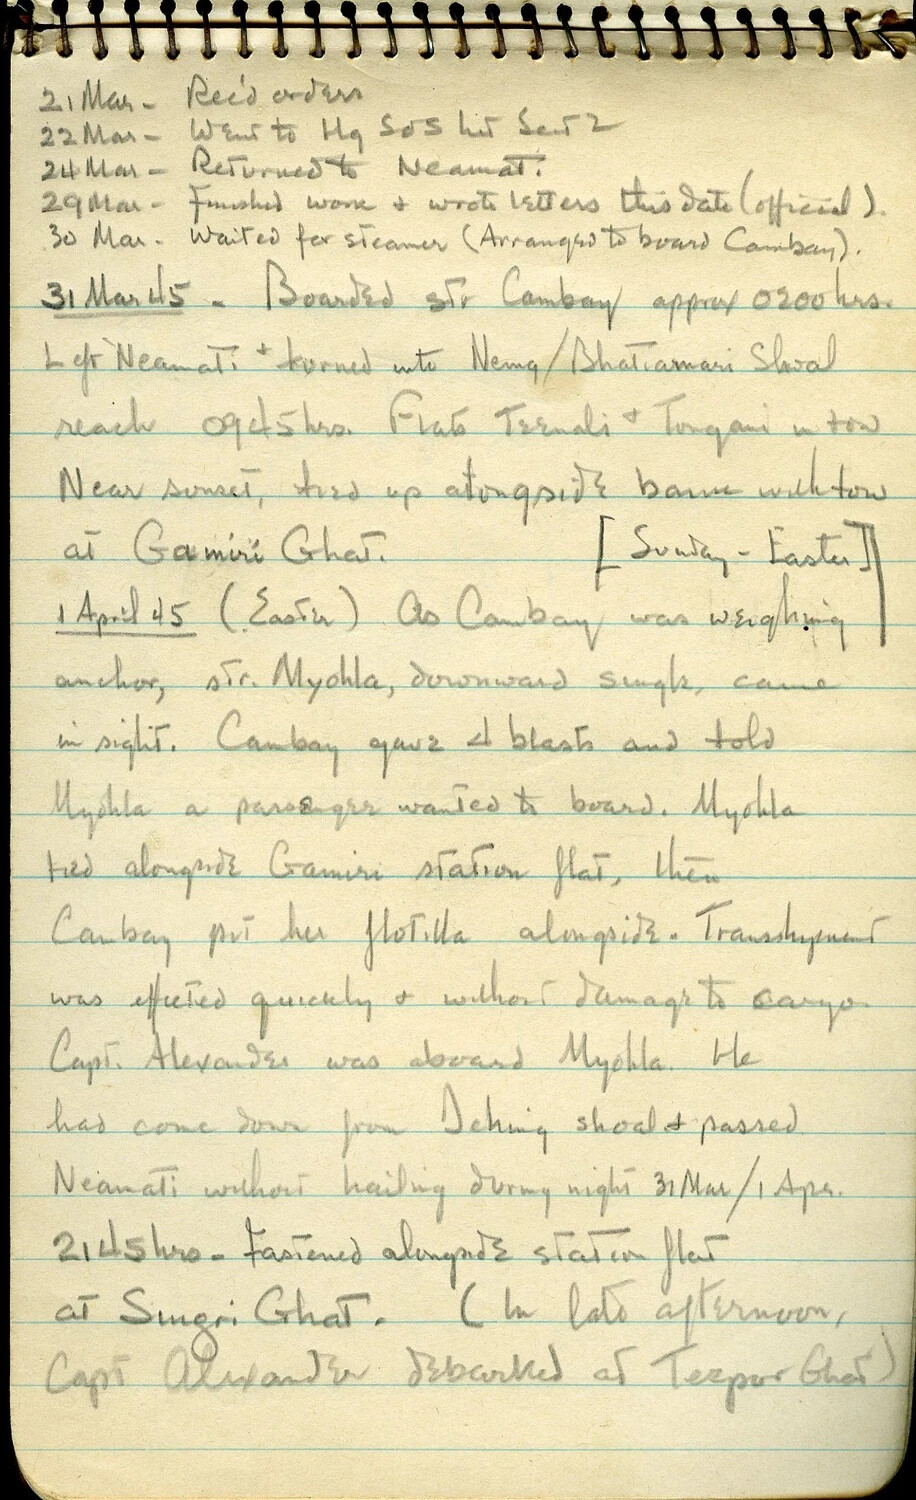 21 Mar - Rec'd orders
22 Mar - Went to Hq SoS Int Sect 2
24 Mar - Returned to Neamati.
29 Mar - Finished work + wrote letters this date (official).
30 Mar - Waited for steamer (Arranged to board Cambay).
31 Mar 45 - Boarded str Cambay approx 0200 hrs.
Left Neamati + turned into /Bhatiamari Shoal
reach 0945 hrs. Flats Teenali + Tongani in tow
Near sunset, tied up alongside with tow
at Gamiri Ghat. [Sunday - Easter]
1 April 45 (Easter) As Cambay was weighing
anchor, str. Myohla, downward single, came
in sight. Cambay gave 4 blasts and told
Myohla a passenger wanted to board. Myohla
tied alongside Gamiri station flat, then
Cambay put her flotilla alongside. Transhipment
was effected quickly + without damage to cargo.
Capt. Alexander was aboard Myohla. He
had come down from Dehing shoal + passed
Neamati without hailing during night 31 Mar/1 Apr.
2145 hrs - Fastened alongside station flat
at Singri Ghat. (In late afternoon,
Capt Alexander debarked at Tezpur Ghat)